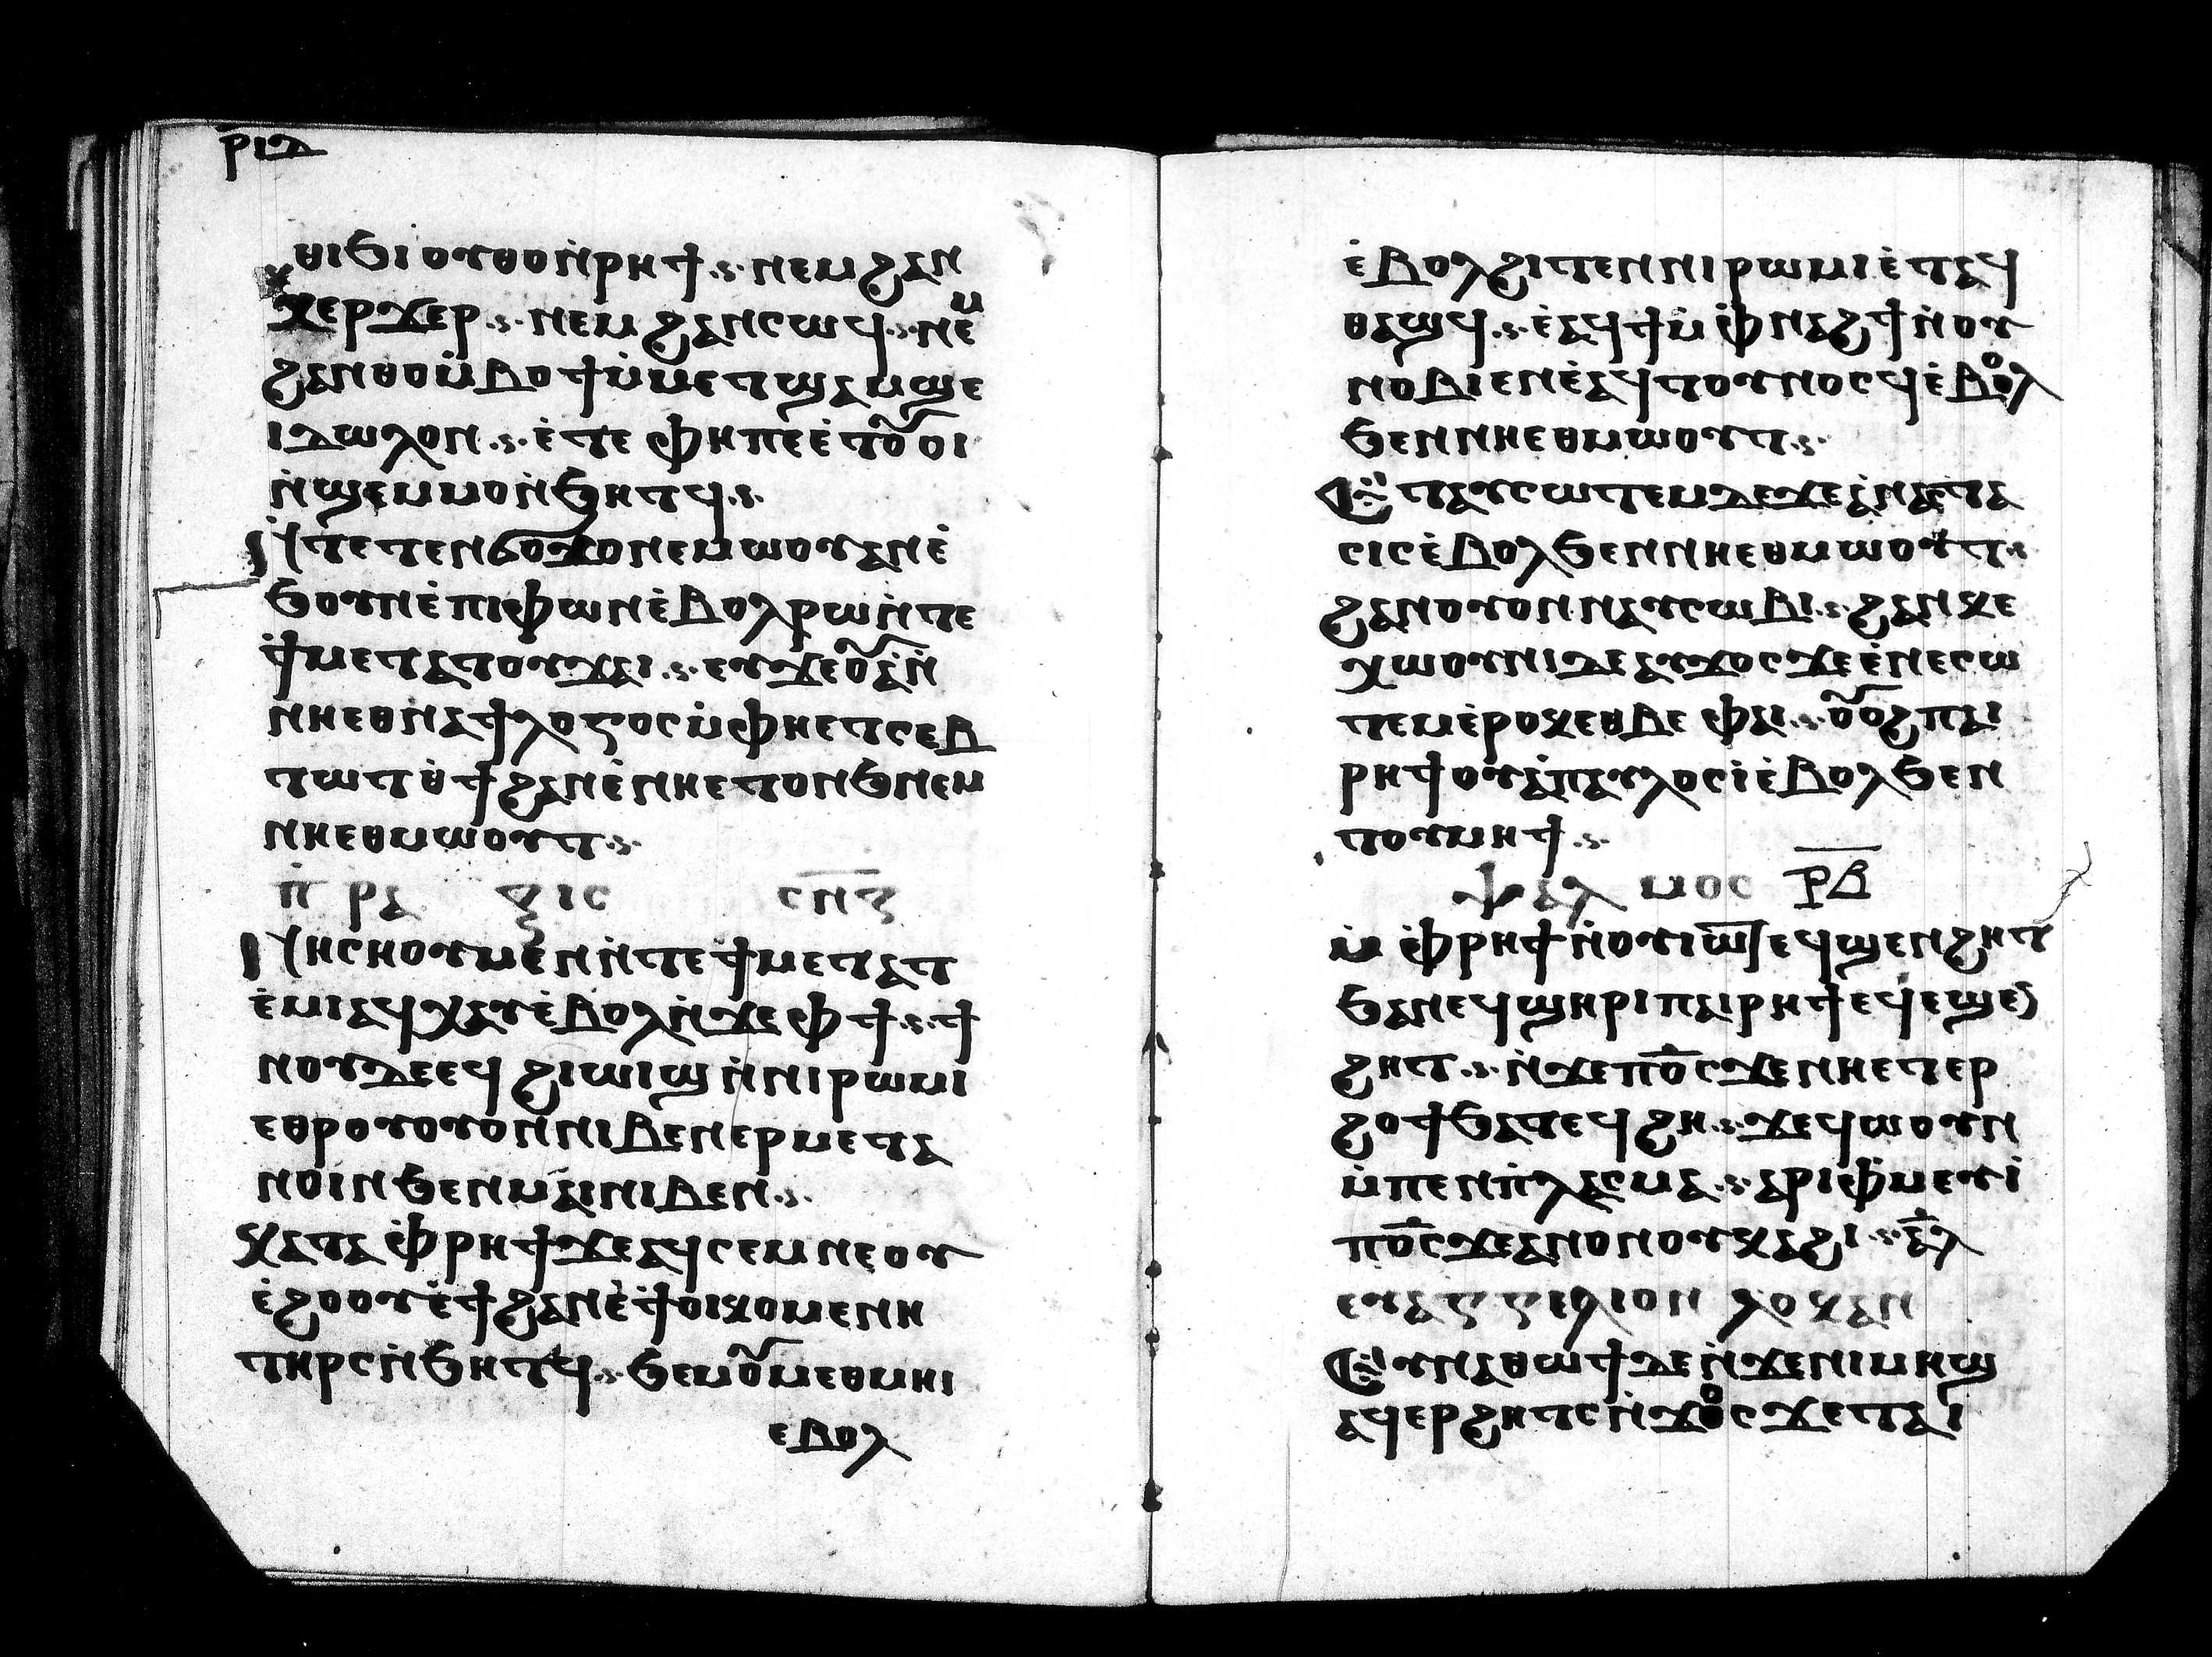 ⲣⲓⲇ
ⲑⲓϧⲓ ⲟⲩⲑⲟⲛ̇ⲣⲏϯ ⲛⲉⲙ ϩⲁⲛ
ϫⲉⲣϫⲉⲣ ⲛⲉⲙ ϩⲁⲛⲥⲱϥ ⲛⲉⲙ
ϩⲁⲛⲑⲟⲙ̇ⲃⲟϯ ⲙ̇ⲙⲉⲧϣⲁⲙϣⲉ
ⲓⲇⲱⲗⲟⲛ ⲉ̇ⲧⲉ ⲫⲏⲡⲉ ⲉ̇ⲧⲟⲩⲟⲓ
ⲛ̇ϣⲉⲙⲙⲟ ⲛ̇ϧⲏⲧϥ
ⲛ̇ⲧⲉⲧⲉⲛϭⲟϫⲟ ⲛⲉⲙⲱⲟⲩ ⲁⲛ ⲉ̇
ϧⲟⲩⲛ ⲉ̇ⲡⲓⲫⲱⲛ ⲉ̇ⲃⲟⲗ ⲣⲱ ⲛ̇ⲧⲉ
ϯⲙⲉⲧⲁⲧⲟⲩϫⲁⲓ ⲉⲩϫⲉⲟⲩⲁ̇ ⲛ̇
ⲛⲏⲉⲑⲛⲁϯⲗⲟⲅⲟⲥ ⲙ̇ⲫⲏⲉⲧⲥⲉⲃ
ⲧⲱⲧ ⲉ̇ϯϩⲁⲡ ⲉ̇ⲛⲏⲉⲧⲟⲛϧ ⲛⲉⲙ
ⲛⲏⲉⲑⲙⲱⲟⲩⲧ
ⲡ̇ⲣⲁⲝⲓⲥ ⲥⲛⲍ
ⲛⲓⲥⲏⲟⲩ ⲙⲉⲛ ⲛ̇ⲧⲉ ϯⲙⲉⲧⲁⲧ
ⲉ̇ⲙⲓ ⲁϥⲭⲁⲩ ⲉ̇ⲃⲟⲗ ⲛ̇ϫⲉ ⲫϯ ϯ
ⲛⲟⲩ ⲇⲉ ⲉϥϩⲓⲱⲓϣ ⲛ̇ⲛⲓⲣⲱⲙⲓ
ⲉⲑⲣⲟⲩⲟⲩⲟⲛ ⲛⲓⲃⲉⲛ ⲉⲣⲙⲉⲧⲁ
ⲛⲟⲓⲛ ϧⲉⲛ ⲙⲁⲓ ⲛⲓⲃⲉⲛ
ⲕⲁⲧⲁ ⲫ̇ⲣⲏϯ ϫⲉ ⲁϥⲥⲉⲙⲛⲉ ⲟⲩ
ⲉ̇ϩⲟⲟⲩ ⲉ̇ϯϩⲁⲡ ⲉ̇ϯⲟⲓⲕⲟⲙⲉⲛⲏ
ⲧⲏⲣⲥ ⲛ̇ϧⲏⲧϥ ϧⲉⲛ ⲟⲩⲙⲉⲑⲙⲏⲓ
ⲉⲃⲟⲗ
ⲉ̇ⲃⲟⲗϩⲓⲧⲉⲛ ⲛⲓⲣⲱⲙⲓ ⲉ̇ⲧⲁϥ
ⲑⲁϣϥ ⲉ̇ⲁϥϯ ⲙ̇ⲫ̇ⲛⲁϩϯ ⲛ̇ⲟⲩ
ⲛⲟⲃⲓⲉⲛ ⲉ̇ⲁϥⲧⲟⲩⲛⲟⲥϥ ⲉ̇ⲃⲟⲗ
ϧⲉⲛ ⲛⲏⲉⲑⲙⲱⲟⲩⲧ
ⲉ̇ⲧⲁⲩⲥⲱⲧⲉⲙ ⲇⲉ ϫⲉ ⲁ̇ⲛⲁⲥⲧⲁ
ⲥⲓⲥ ⲉ̇ⲃⲟⲗϧⲉⲛ ⲛⲏⲉⲑⲙⲱⲟⲩⲧ
ϩⲁⲛⲟⲩⲟⲛ ⲛⲁⲩⲥⲱⲃⲓ ϩⲁⲛⲕⲉ
ⲭⲱⲟⲩⲛⲓ ⲇⲉ ⲁⲩϫⲟⲥ ϫⲉ ⲉ̇ⲛⲉⲥⲱ
ⲧⲉⲙ ⲉ̇ⲣⲟⲕ ⲉⲑⲃⲉ ⲫⲁⲓ ⲟⲩⲟϩ ⲡⲁⲓ
ⲣⲏϯ ⲟⲩⲁ̇ ⲡⲁⲩⲗⲟⲥ ⲓ̇ ⲉ̇ⲃⲟⲗϧⲉⲛ
ⲧⲟⲩⲙⲏϯ
ⲯⲁⲗⲙⲟⲥ ⲣⲃ
ⲙ̇ⲫ̇ⲣⲏϯ ⲛ̇ⲟⲩⲓⲱⲧ ⲉϥϣⲉⲛϩⲏⲧ
ϧⲁ ⲛⲉϥϣⲏⲣⲓ ⲡⲁⲓⲣⲏϯ ⲉϥⲉϣⲉⲛ
ϩⲏⲧ ⲛ̇ϫⲉ ⲡⲟ̅ⲥ ϫⲉⲛ ⲛⲏⲉⲧⲉⲣ
ϩⲟϯ ϧⲁⲧⲉϥϩⲏ ϫⲉ ϥⲱⲟⲩⲛ
ⲙ̇ⲡⲉⲛⲡ̇ⲗⲁⲥⲙⲁ ⲁⲣⲓⲫ̇ⲙⲉⲩⲓ̇
ⲡⲟ̅ⲥ ϫⲉ ⲁⲛⲟⲛ ⲟⲩⲕⲁϩⲓ ⲁ̅ⲗ
ⲉⲩⲁⲅⲅⲉⲗⲓⲟⲛ ⲗⲟⲩⲕⲁⲛ
ⲉⲩⲛⲁⲑⲱⲟⲩϯ ⲇⲉ ⲛ̇ϫⲉ ⲛⲓⲙⲏϣ
ⲁϥⲉⲣϩⲏⲧⲥ ⲛ̇ϫⲟⲥ ϫⲉ ⲧⲁⲓ